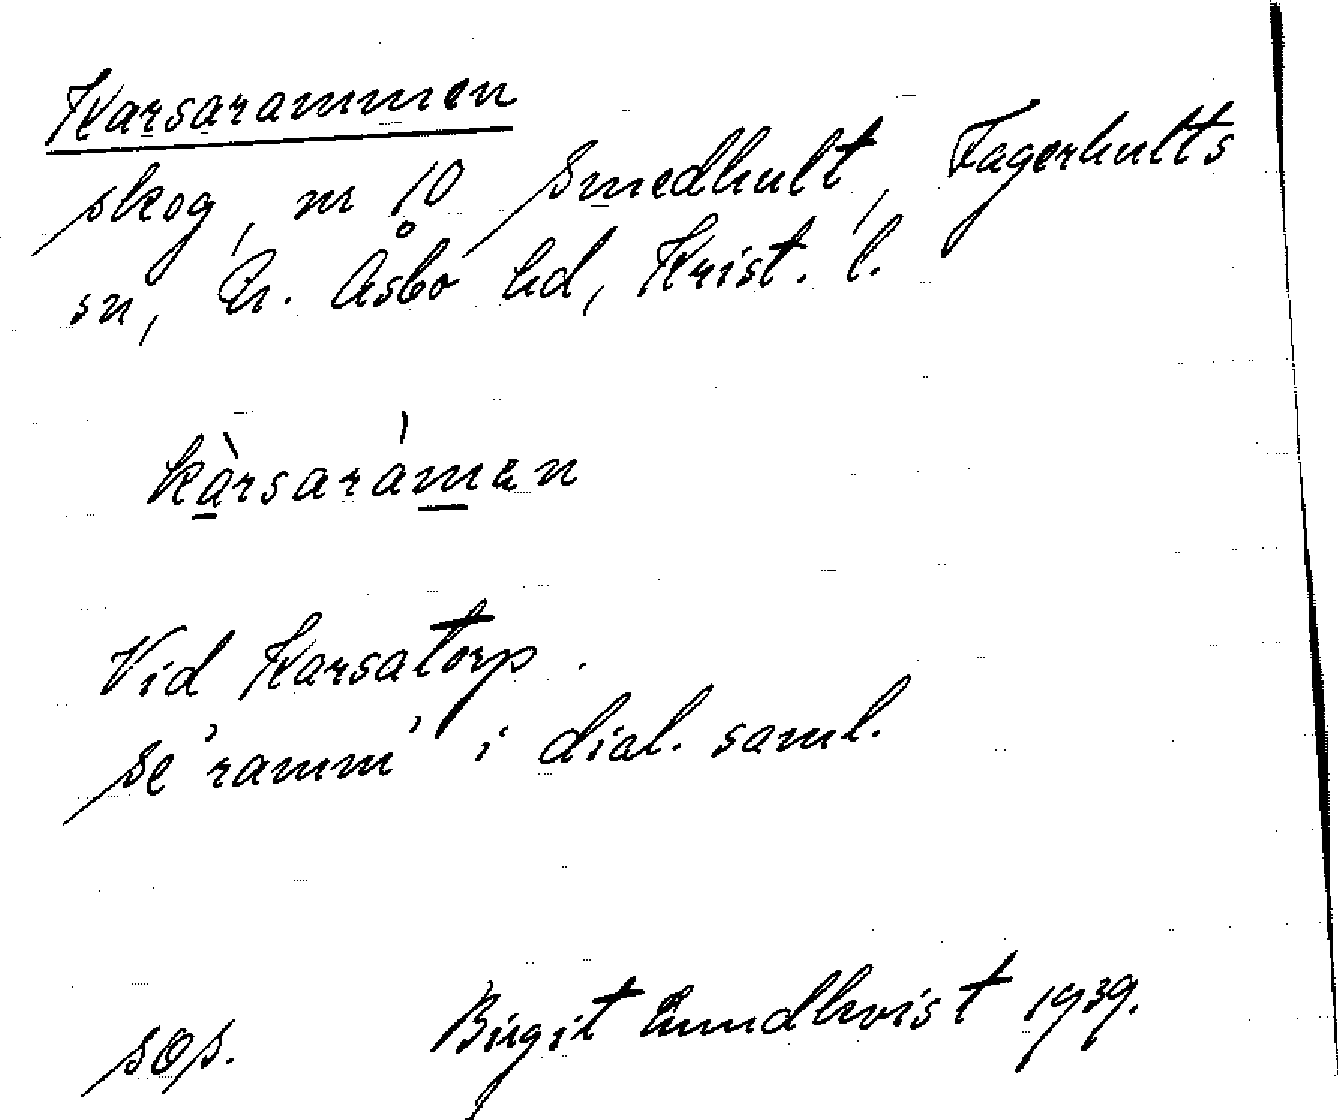 Karsarammen
skog, nr 10 Smedhult, Fagerhults
sn, N. Åsbo hd, Krist. l.
kàrsarámen
Vid Karsatorp.
se 'ramm' i dial. saml.
sOs. Birgit Lundkvist 1939.